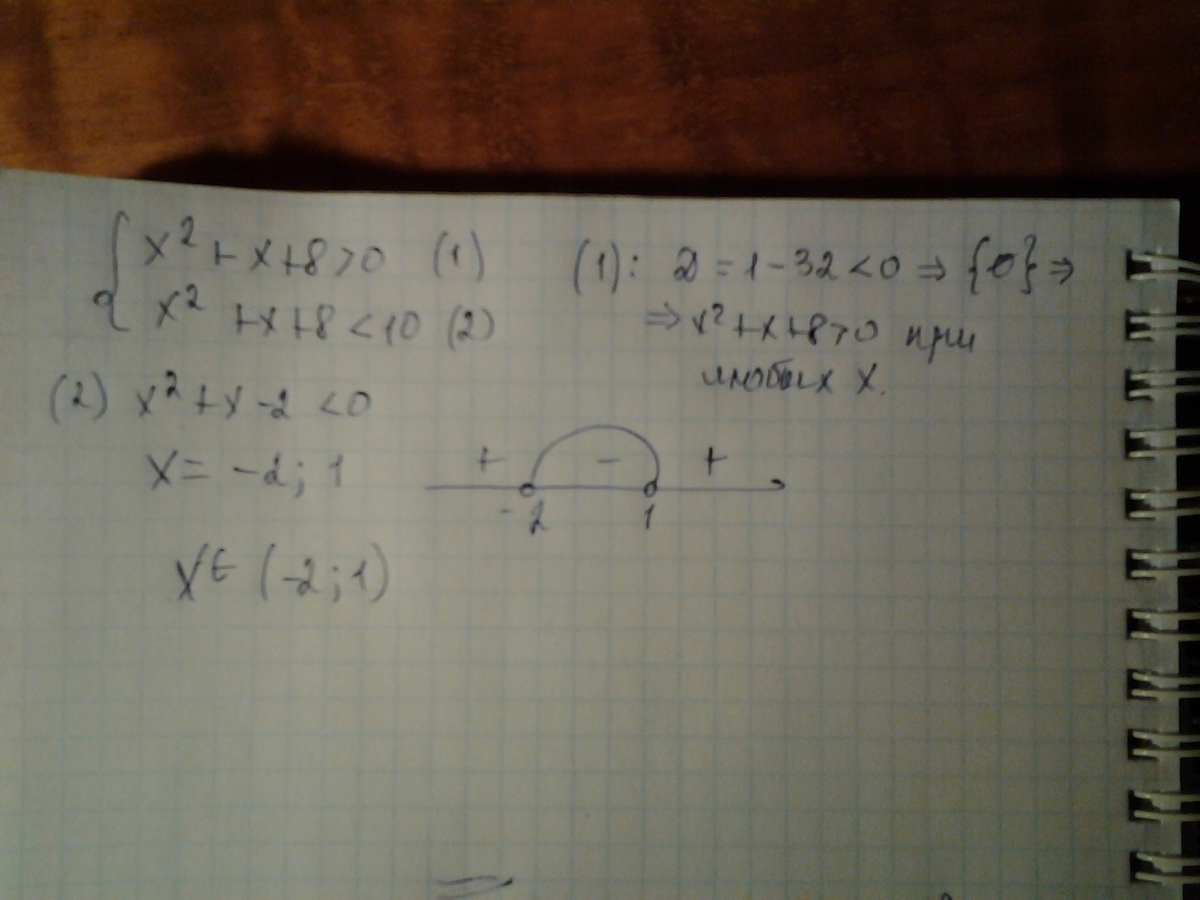 x² + x + 8 > 0 (1)
x² + x + 8 < 10 (2)
(1): D = 1 - 32 < 0 ⇒ {∅} ⇒
⇒ x² + x + 8 > 0 при
любых x.
(2) x² + x - 2 < 0
x = -2; 1
+ - +
-2 1
x ∈ (-2; 1)